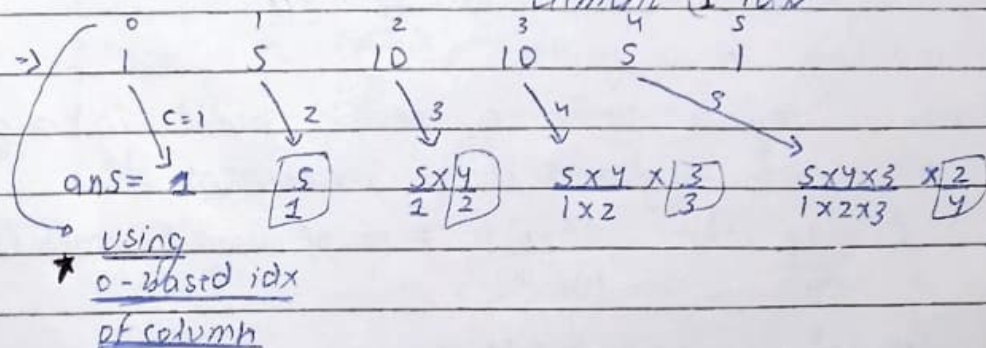 0 1 2 3 4 5
=> 1 5 10 10 5 1
c=1 2 3 4 5
ans= 1 5/1 5x4/1 2 5x4/1x2 x 3/3 5x4x3/1x2x3 x 2/4
using
★ 0-based idx
of column